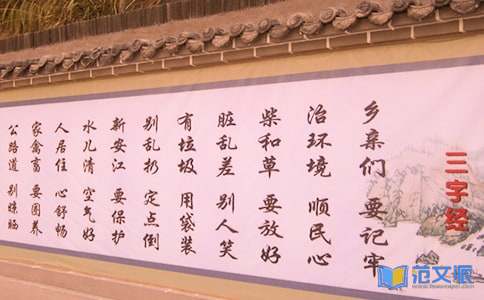 三字经
乡亲们 要记牢
治环境 顺民心
柴和草 要放好
脏乱差 别人笑
有垃圾 用袋装
别乱扔 定点倒
新安江 要保护
水儿清 空气好
人居住 心舒畅
家禽畜 要圈养
公路道 别晾晒